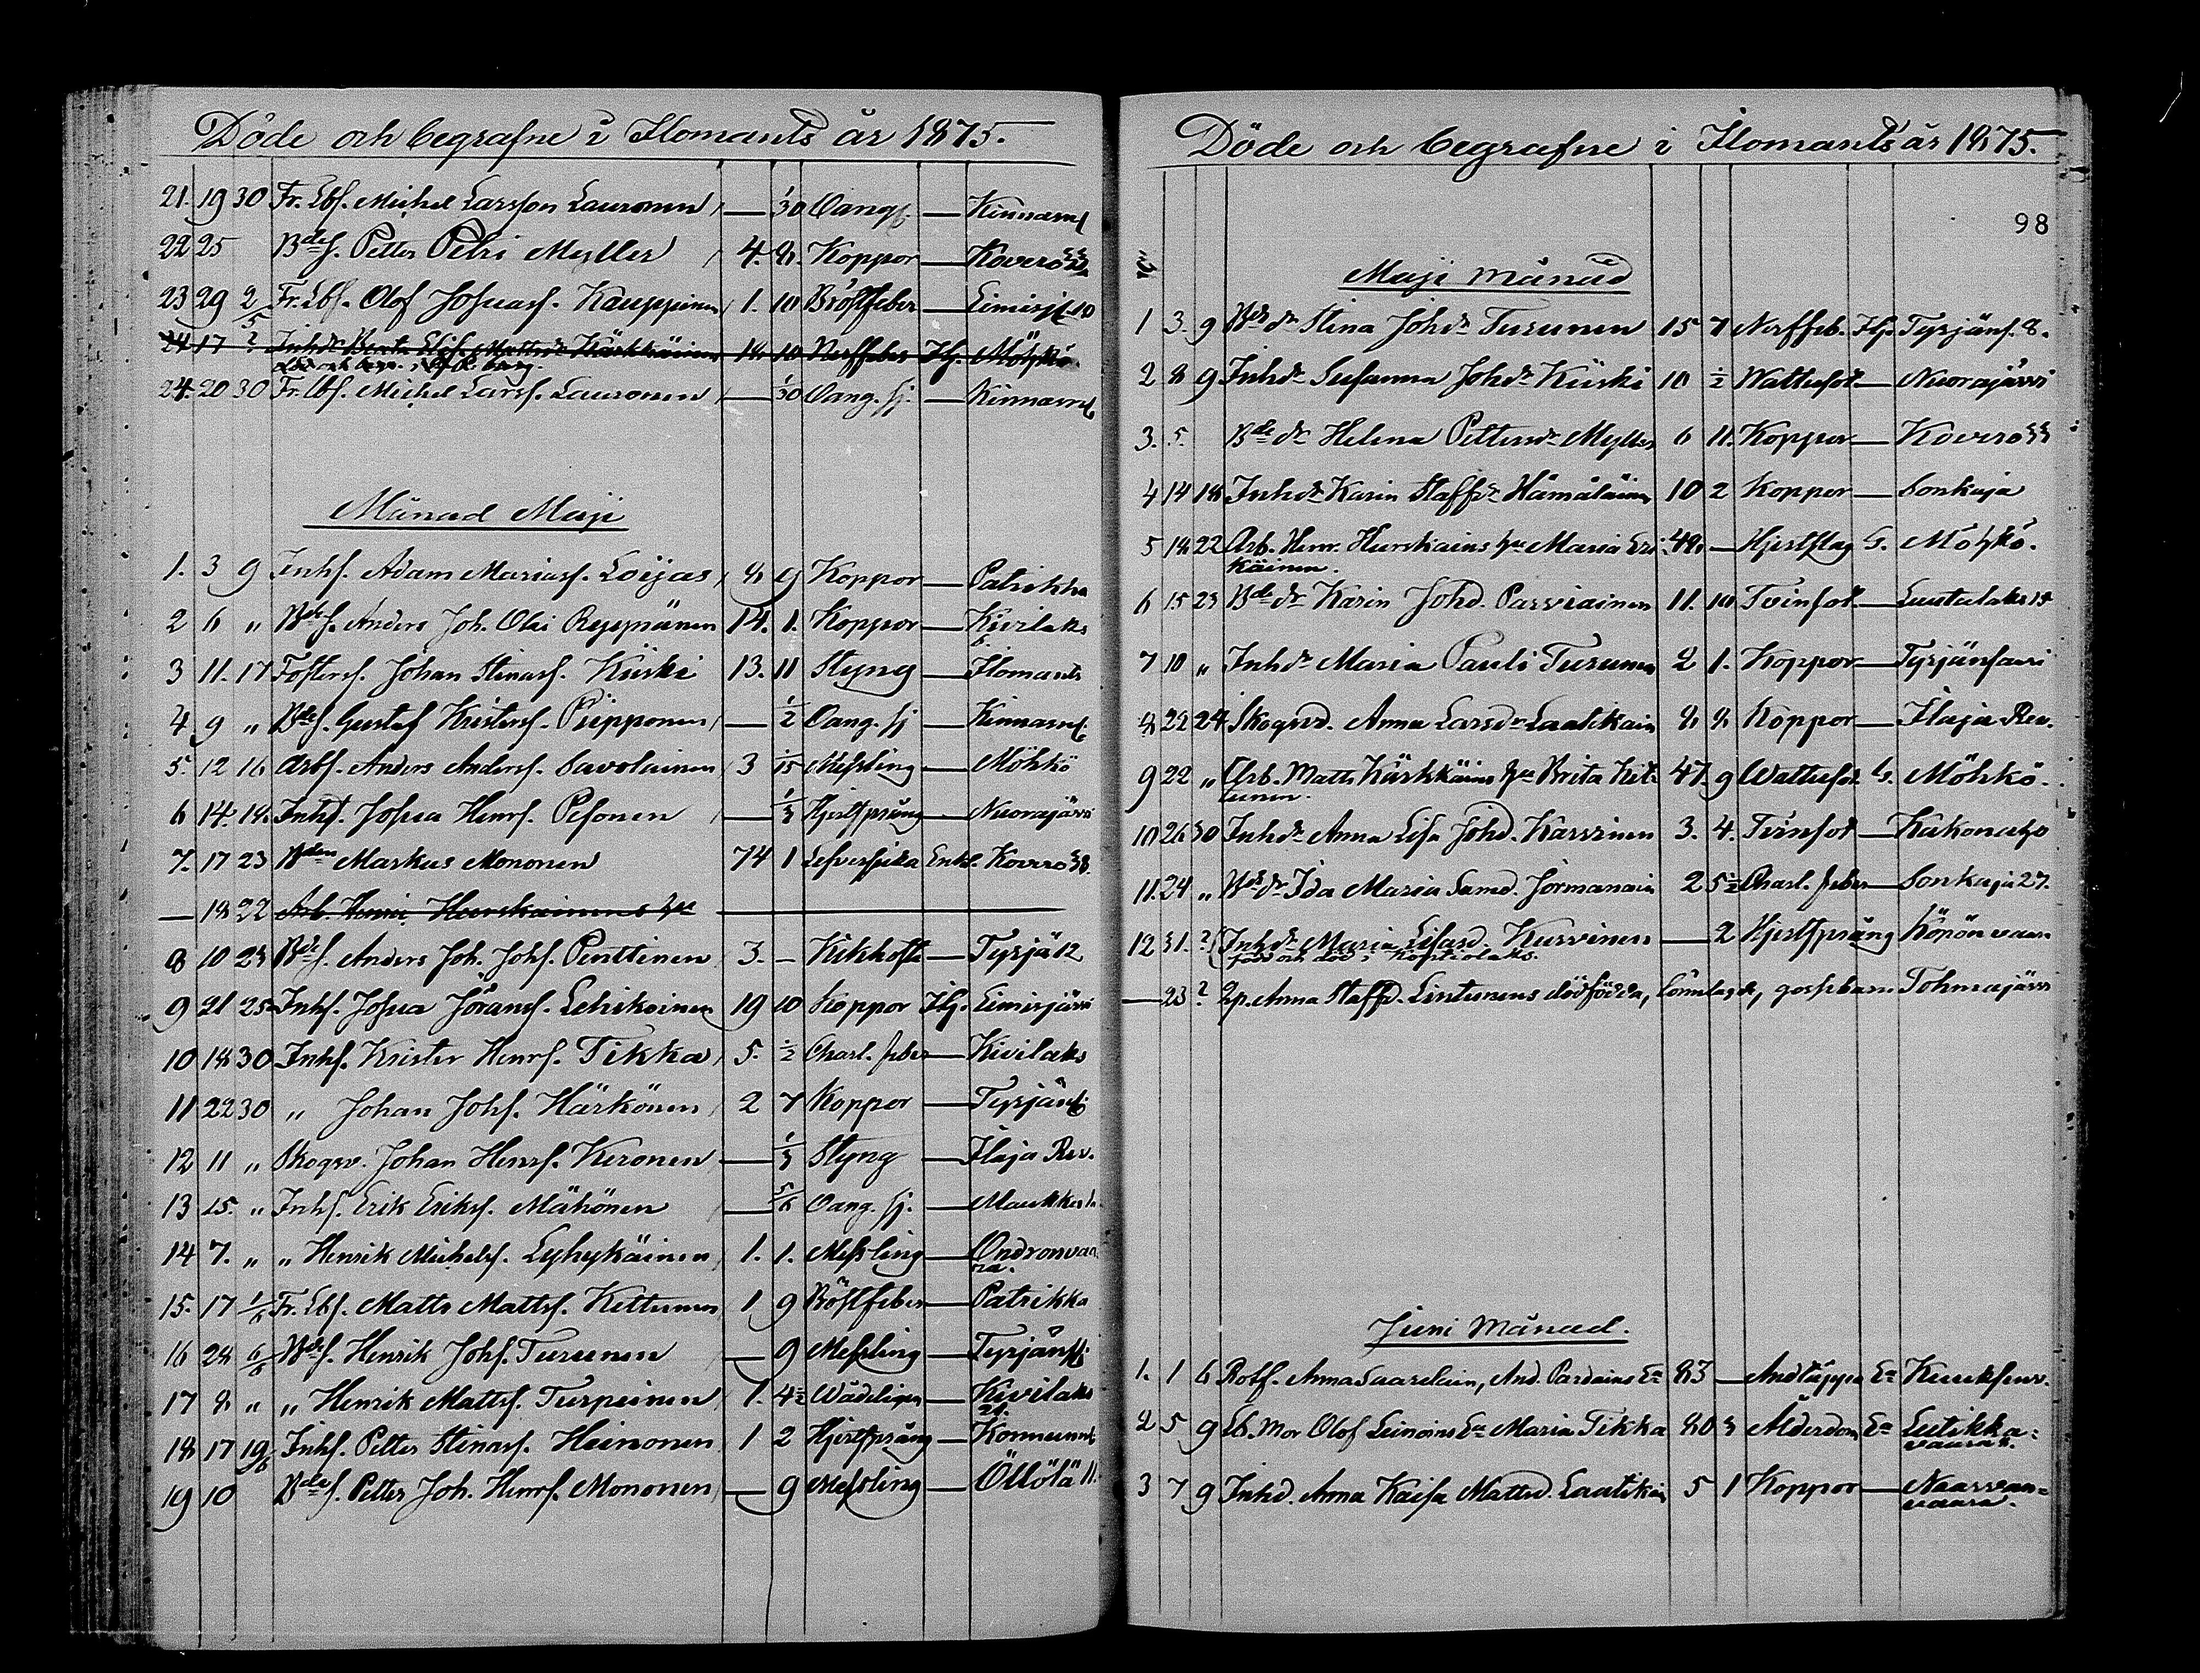 Döde och begrafne i Ilomants år 1875.
21. 19 30 Fr. Lbs. Michel Larsson Lauronen — 1/30 Oangf. — Kinnarn
22 25 Bdes. Petter Petri Myller 4. 8. Koppor — Kovero
23 29 2/5 Fr. Lbs. Olof Josuas. Kauppinen 1. 10 Bröstfeber — Liminj 10
24 17 ? Inhdr Berta Lis. Mattsdr Kärkkäinen 18. 10 Nerffeber Ilg. Möhkö
24. 20 30 Fr. lbs. Michel Larss. Lauronen — 1/30 Oang. sj. — Kinnarn
Månad Maji
1. 3 9 Inhs. Adam Mariass. Loijas 8 9 Koppor — Patrikka
2 6 „ Bdes. Anders Joh. Olai Reppänen 14. 1. Koppor — Kivilaks
6.
3 11. 17 Fosters. Johan Stinas. Kiiski 13. 11 Styng — Ilomants
4 9 „ Bdes. Gustaf Kristers. Piipponen — 1/2 Oang. sj — Kinnarn
5. 12 16 Arbs. Anders Anders. Savolainen 3 1/15 Messling — Möhkö
6 14. 18. Inhs. Josua Henrs. Pesonen — 1/3 Hjertsprång — Nuorajärvi
7. 17 23 Bden Markus Mononen 74 1 Lefversjuka Enkl. Kovero 38.
— 18 22 Arb. Henric Hurskainens hu
8 10 23 Bdes. Anders Joh. Johs. Penttinen 3. – Kikhosta — Tyrjä 12
9 21 25 Inhs. Josua Görans. Lehikoinen 19 10 Koppor Ilg. Liminjärvi
10 18 30 Inhs. Krister Henrs. Tikka 5. 1/2 Charl. feber — Kivilaks
11 22 30 „ Johan Johs. Härkönen 2 7 Koppor — Tyrjäns
12 11 „ Skogsv. Johan Henrs. Keronen — 1/3 Styng — Ilaja Rev.
13 25. „ Inhs. Erik Eriks. Mähönen — 5/6 Oang. sj. — Maukkula
14 7. „ „ Henrik Michels. Lyhykäinen 1. 1. Messling — Ondronvaa
ra.
15. 17 1/6 Fr. Lbs. Matts Matts. Kettunen 1 9 Bröstfeber — Patrikka
16 28 6/6 Bdes. Henrik Johs. Turunen — 9 Messling — Tyrjäns
17 8 „ „ Henrik Matts. Turpeinen 1. 4 1/2 Wådeligen — Kivilaks
21.
18 17 19/6 Inhs. Petter Stinas. Heinonen 1 2 Hjertsprång — Konnunn
19 10 Bdes. Petter Joh. Henrs. Mononen — 9 Messling — Öllölä 11.
Döde och begrafne i Ilomants år 1875.
98
Maji månad
1 3. 9 Bdedr Stina Johdr Turunen 15 7 Nerffeb. Ilg. Tyrjäns. 8.
2 8 9 Inhdr Susanna Johdr Kiiski 10 1/2 Wattusot — Nuorajärvi
3. 5. Bdedr Helena Pettersdr Myller 6 11. Koppor — Kovero
4 14 18 Inhdr Karin Staffdr Hämäläinen 10 2 Koppor — Sonkaja
5 18 22 Arb. Henr. Hurskains hu Maria Ers 48. — Hjertslag G. Möhkö.
käinen.
6 15 23 Bdedr Karin Johd. Parviainen 11. 10 Tvinsot — Luutalaks 15
7 10 „ Inhdr Maria Pauli Turunen 2 1. Koppor — Tyrjänsaari
8 22 24 Skogsvd. Anna Larsdr Laatikain 8 8 Koppor — Ilaja Rev.
9 22 „ Arb. Matts Kärkkäins hu Brita Ket- 47. 9 Wattusot G. Möhkö.
tunen.
10 26 30 Inhdr Anna Lisa Johd. Karvinen 3. 4. Tvinsot — Kakonaho
11. 24 „ Bdedr Ida Maria Samd. Jormanain 2 5 1/2 Charl. feber — Sonkaja 27.
12 31. ? Inhdr Maria Lisasd. Kurvinen — 2 Hjertsprång Köpönvaara
född och död i Kontiolaks.
— 23 ? 2p. Anna Staffd. Lintunens dödfödda, lönnlagde, gossebarn Tohmajärvi
Juni Månad.
1. 1 6 Rotf. Anna Saarelain, And. Pardains Ea 83 — Andtäppa Ea Kuuksenv.
2 5 9 Lb. Mor Olof Leinoins Ea Maria Tikka 80 3 Ålderdom Ea Lutikka-
vaara.
3 7 9 Inhd. Anna Kaisa Mattsd. Laatikain 5 1 Koppor — Naarvan-
vaara.